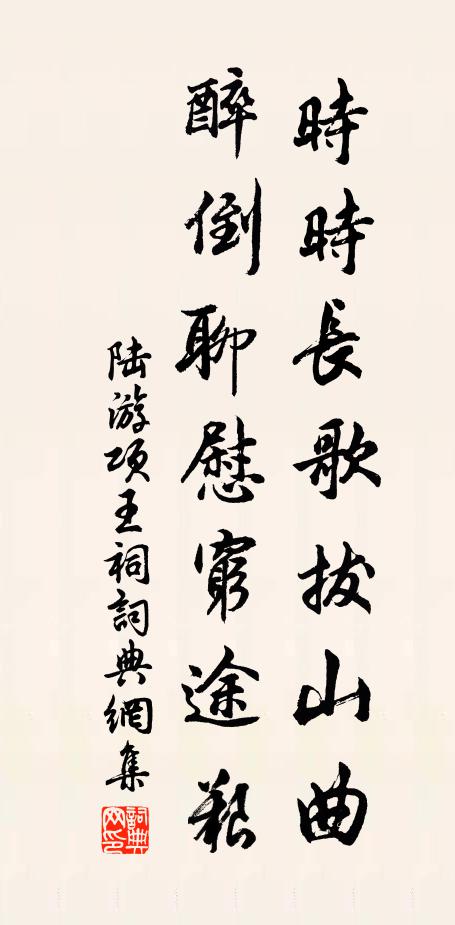 時時長歌拔山曲
醉倒聊慰窮途艱
陆游项王祠詞典網集
詞典
网印